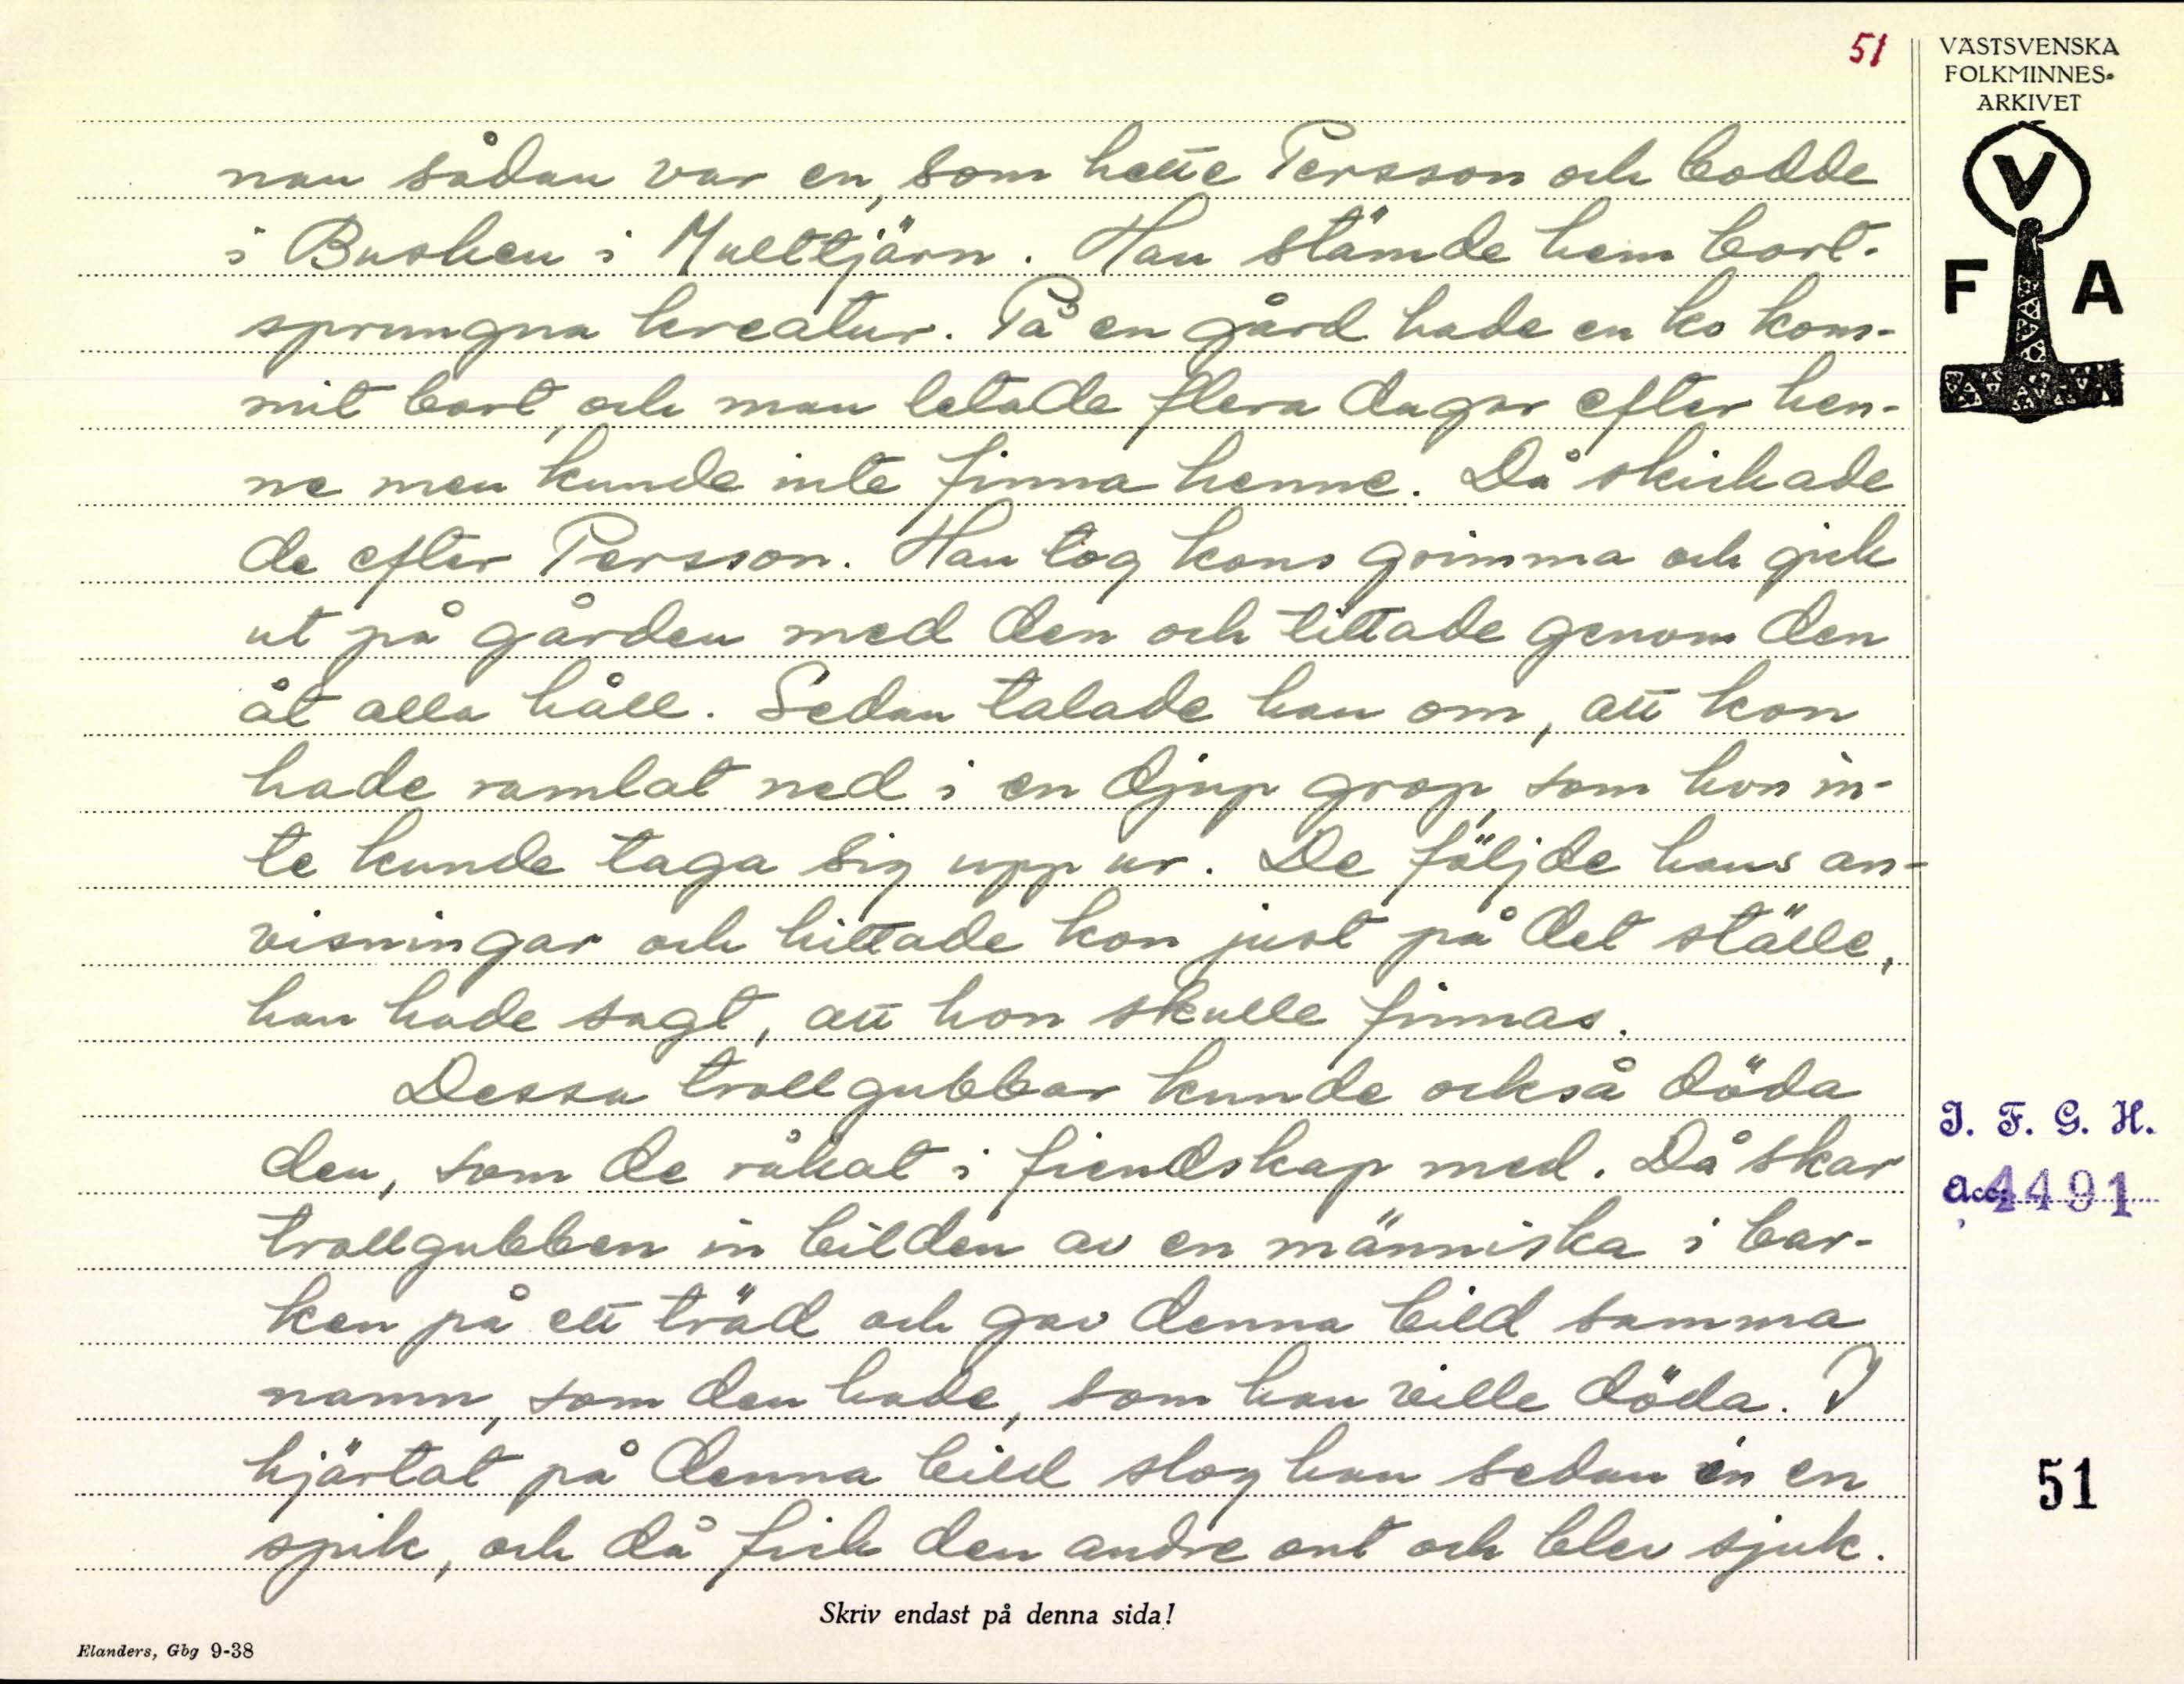 51
VÄSTSVENSKA
FOLKMINNES-
ARKIVET
V
F A
nan sådan var en, som hette Persson och bodde
i Busken i Multtjärn. Han stämde hem bort-
sprungna kreatur. På en gård hade en ko kom-
mit bort, och man letade flera dagar efter hen-
ne men kunde inte finna henne. Då skickade
de efter Persson. Han tog kons grimma och gick
ut på gården med den och tittade genom den
åt alla håll. Sedan talade han om, att kon
hade ramlat ned i en djup grop, som hon in-
te kunde taga sig upp ur. De följde hans an-
visningar och hittade kon just på det ställe,
han hade sagt, att hon skulle finnas.
Dessa trollgubbar kunde också döda
den, som de råkat i fiendskap med. Då skar
trollgubben in bilden av en människa i bar-
ken på ett träd och gav denna bild samma
namn, som den hade, som han ville döda. I
hjärtat på denna bild slog han sedan in en
spik, och då fick den andre ont och blev sjuk.
I. F. G. H.
Acc. 4491
51
Skriv endast på denna sida!
Elanders, Gbg 9-38